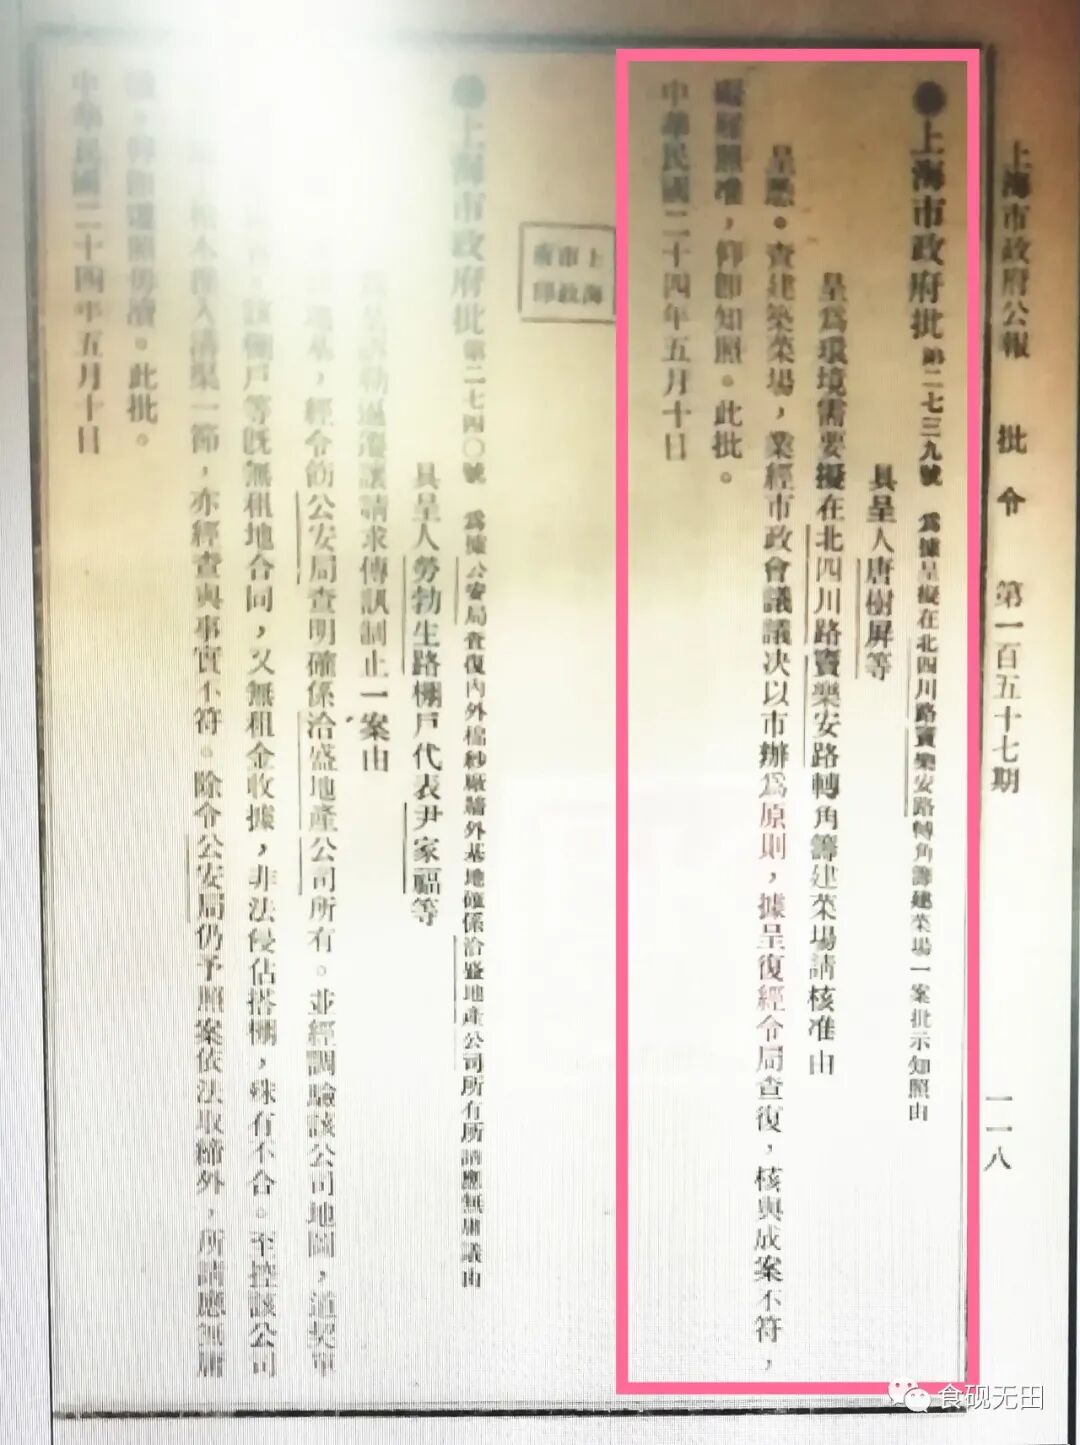 上海市政府公報　批令　第一百五十七期　一一八
●上海市政府批第二七三九號　爲據呈擬在北四川路竇樂安路轉角籌建菜場一案批示知照由
具呈人唐樹屏等
呈爲環境需要擬在北四川路竇樂安路轉角籌建菜場請核准由
呈悉。查建築菜場，業經市政會議議決以市辦爲原則，據呈復經令局查復，核與成案不符，
礙難照准，仰卽知照。此批。
中華民國二十四年五月十日
上海市政府印
●上海市政府批第二七四〇號　爲據公安局查復內外棉紗廠牆外基地確係洽盛地產公司所有所請應無庸議由
具呈人勞勃生路棚戶代表尹家福等
遷讓請求傳訊制止一案由
，經令飭公安局查明確係洽盛地產公司所有。並經調驗該公司地圖，道契單
該棚戶等旣無租地合同，又無租金收據，非法侵佔搭棚，殊有不合。至控該公司
入溝渠一節，亦經查與事實不符。除令公安局仍予照案依法取締外，所請應無庸
，仰卽遵照毋瀆。此批。
中華民國二十四年五月十日
食砚无田